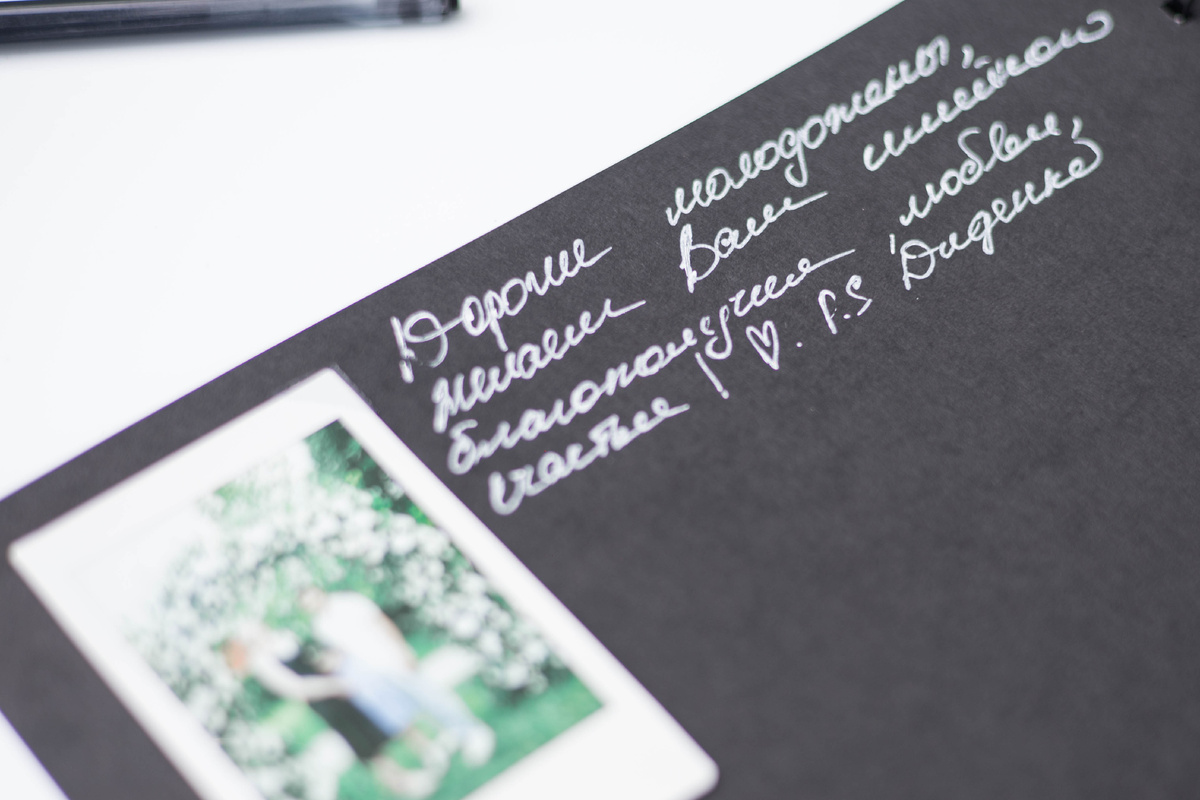 Дорогие молодожены,
желаем Вам семейного
благополучия, любви,
счастья! ♡. P.S Диденко